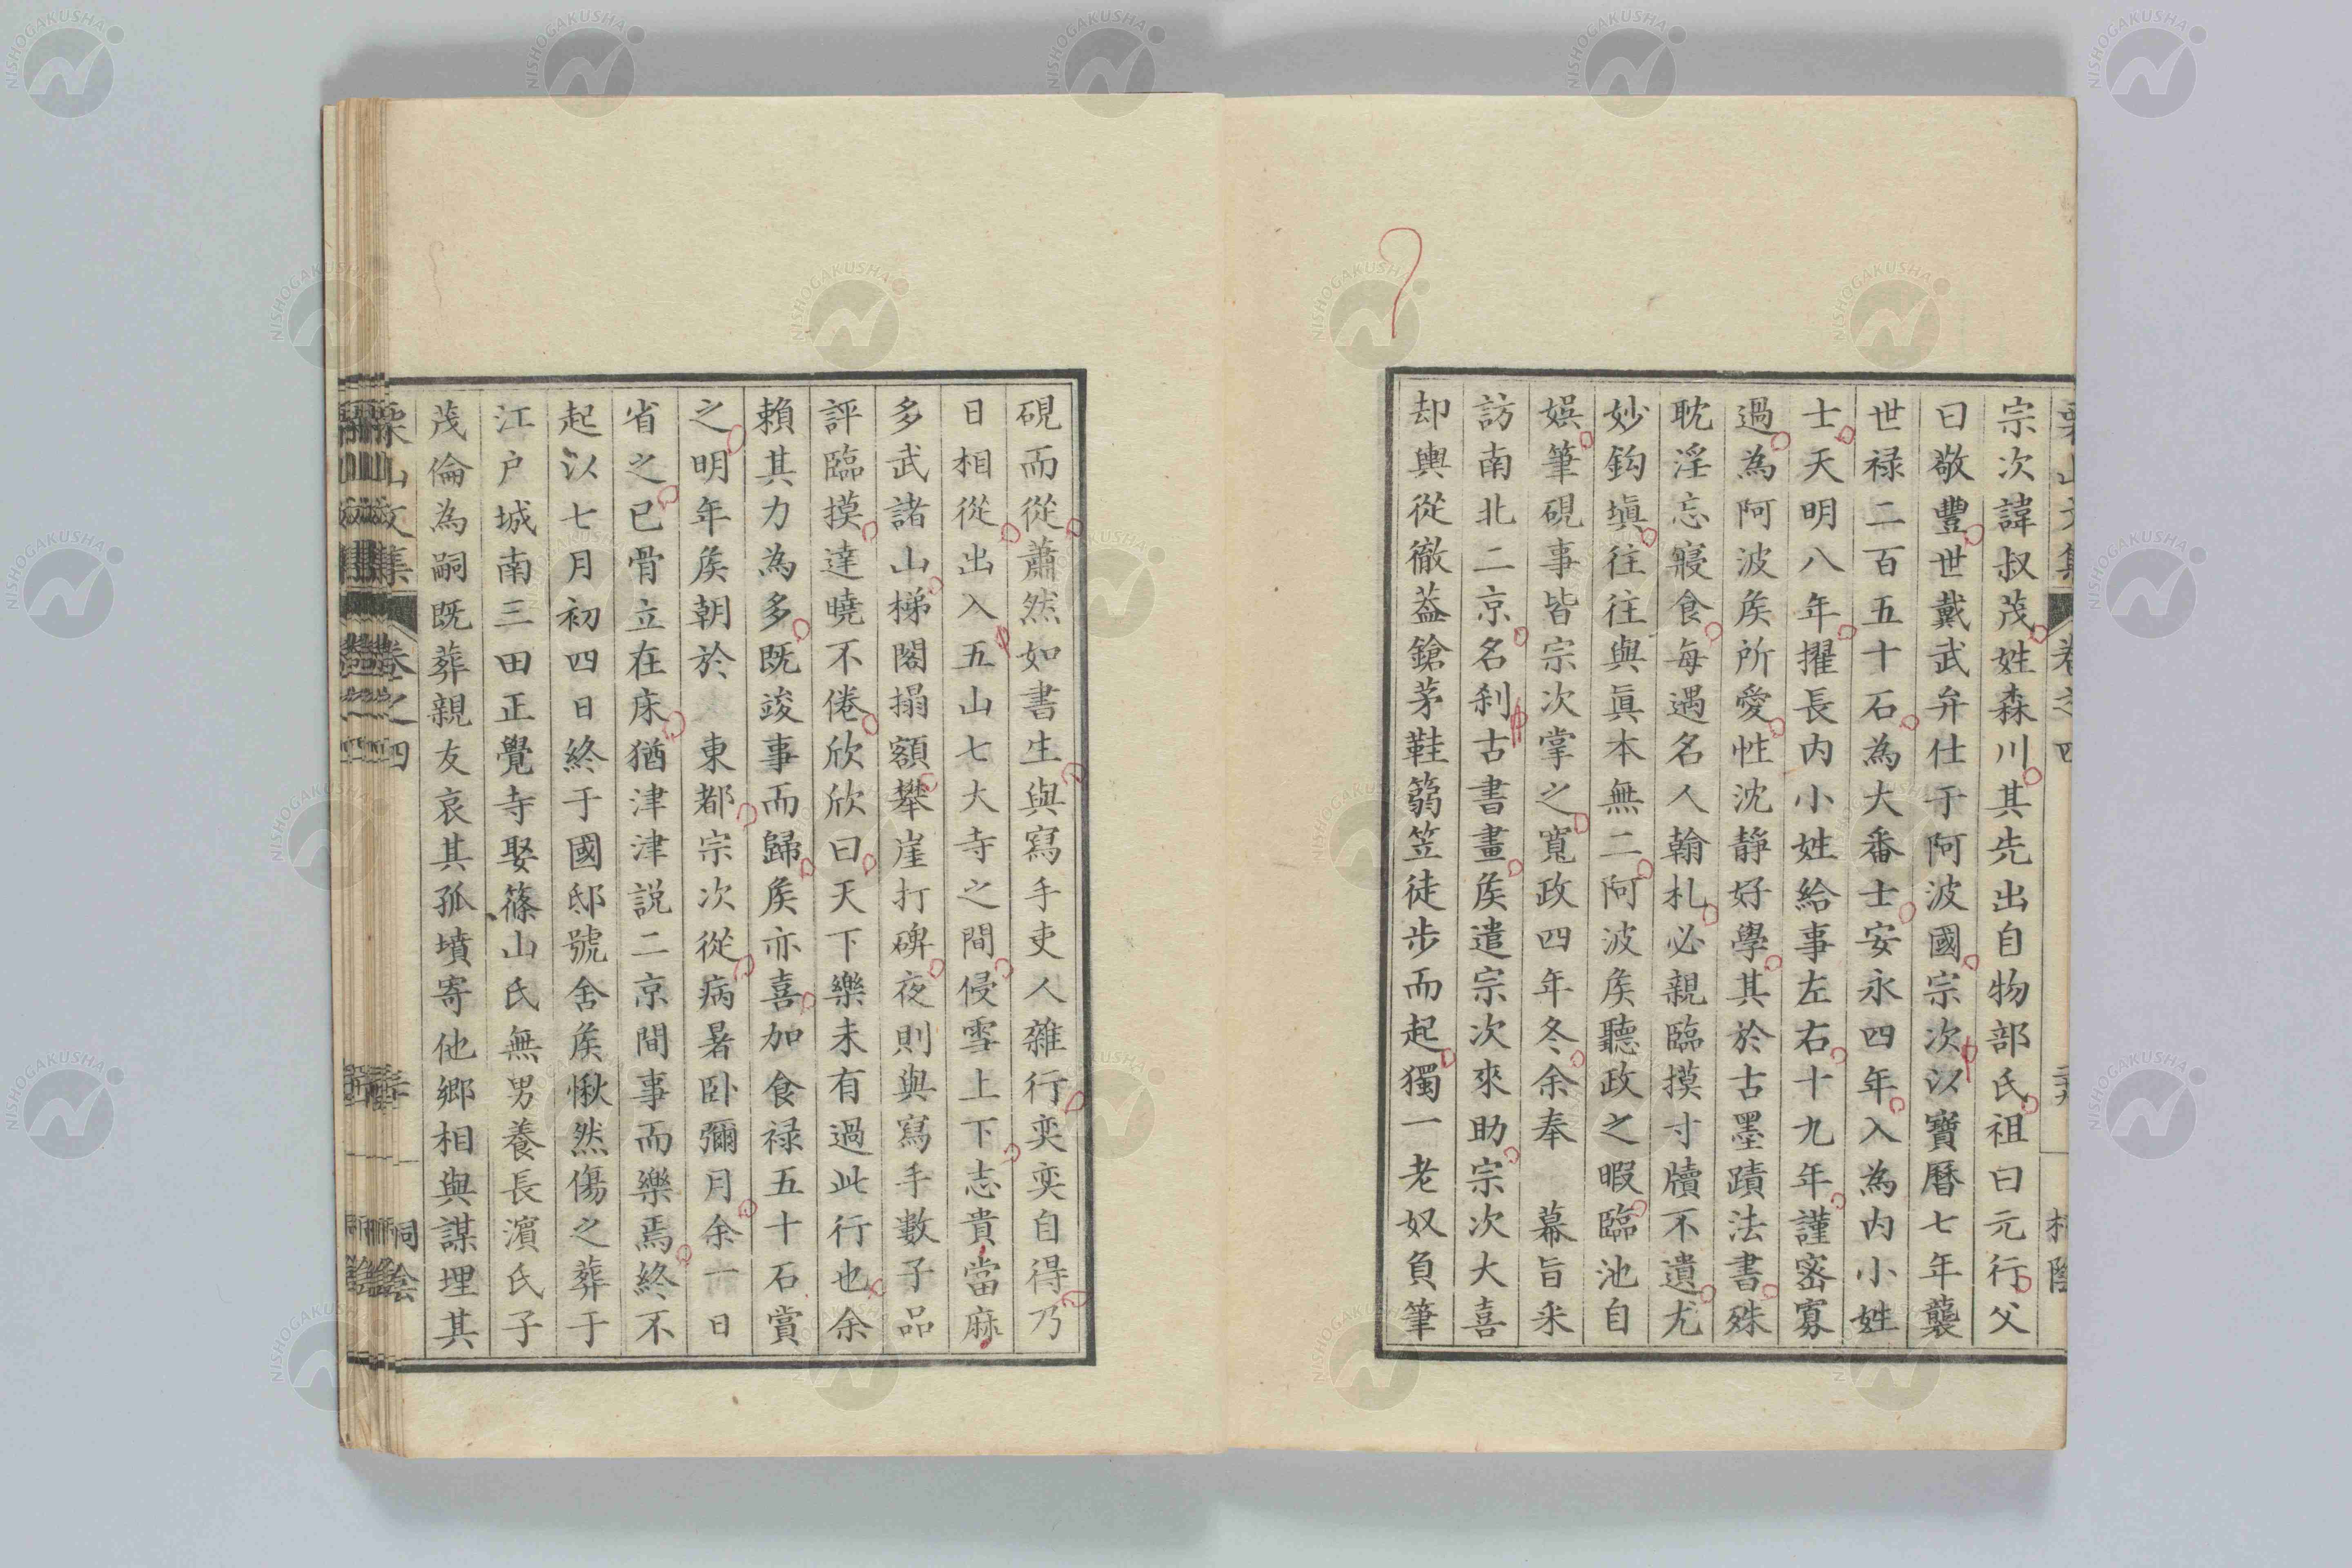 宗次諱叔茂姓森川其先出自物部氏祖曰元行父
曰敬豐世戴武弁仕于阿波國宗次以寶暦七年襲
世禄二百五十石為大番士安永四年入為内小姓
士天明八年擢長内小姓給事左右十九年謹密寡
過為阿波矦所愛性沈靜好學其於古墨蹟法書殊
耽淫忘寢食毎遇名人翰札必親臨摸寸牘不遺尤
妙鈎塡往往與眞本無二阿波矦聽政之暇臨池自
娯筆硯事皆宗次掌之寬政四年冬余奉 幕旨来
訪南北二京名刹古書畫矦遣宗次來助宗次大喜
却輿從徹葢鎗茅鞋篛笠徒步而起獨一老奴負筆
硯而從蕭然如書生與寫手吏人雜行奕奕自得乃
日相從出入五山七大寺之間侵雪上下志貴當麻
多武諸山梯閣搨額攀崖打碑夜則與寫手數子品
評臨摸達曉不倦欣欣曰天下樂未有過此行也余
賴其力為多既竣事而歸矦亦喜加食禄五十石賞
之明年矦朝於 東都宗次從病暑卧彌月余一日
省之已骨立在床猶津津説二京間事而樂焉終不
起以七月初四日終于國邸號舍矦愀然傷之葬于
江戸城南三田正覺寺娶篠山氏無男養長濵氏子
茂倫為嗣既葬親友哀其孤墳寄他郷相與謀埋其
栗山文集 卷之四
NISHOGAKUSHA